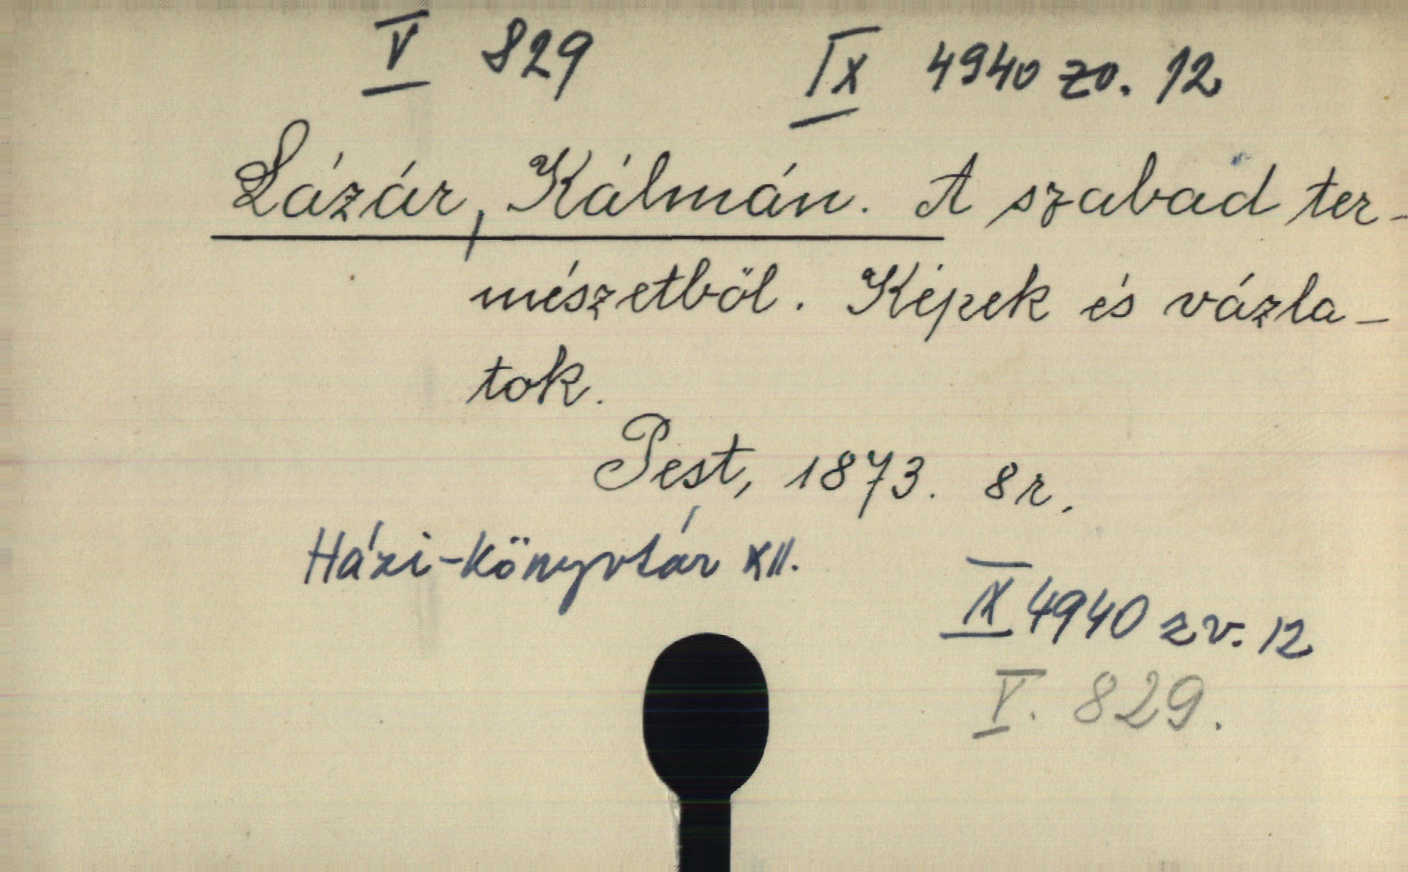 V 829 IX 4940 zv. 12
Lázár, Kálmán. A szabad ter-
mészetből. Képek és vázla-
tok.
Pest, 1873. 8r.
Házi-könyvtár XII.
IX 4940 zv. 12
V. 829.